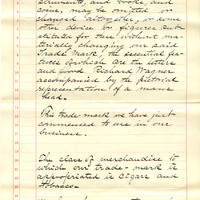 struments, and books, and
some, may be omitted or
changed altogether, or some
other device or figures sub-
stituted for them without ma-
terially changing our said
Trade Mark, the essential fea-
tures of which are the letters
and word Richard Wagner
accompanied by the pictorial
representation of a mans
head.
This trade mark we have just
commenced to use in our
business.
The class of merchandise to
which our trade-mark is
appropriated is Cigars and
Tobacco